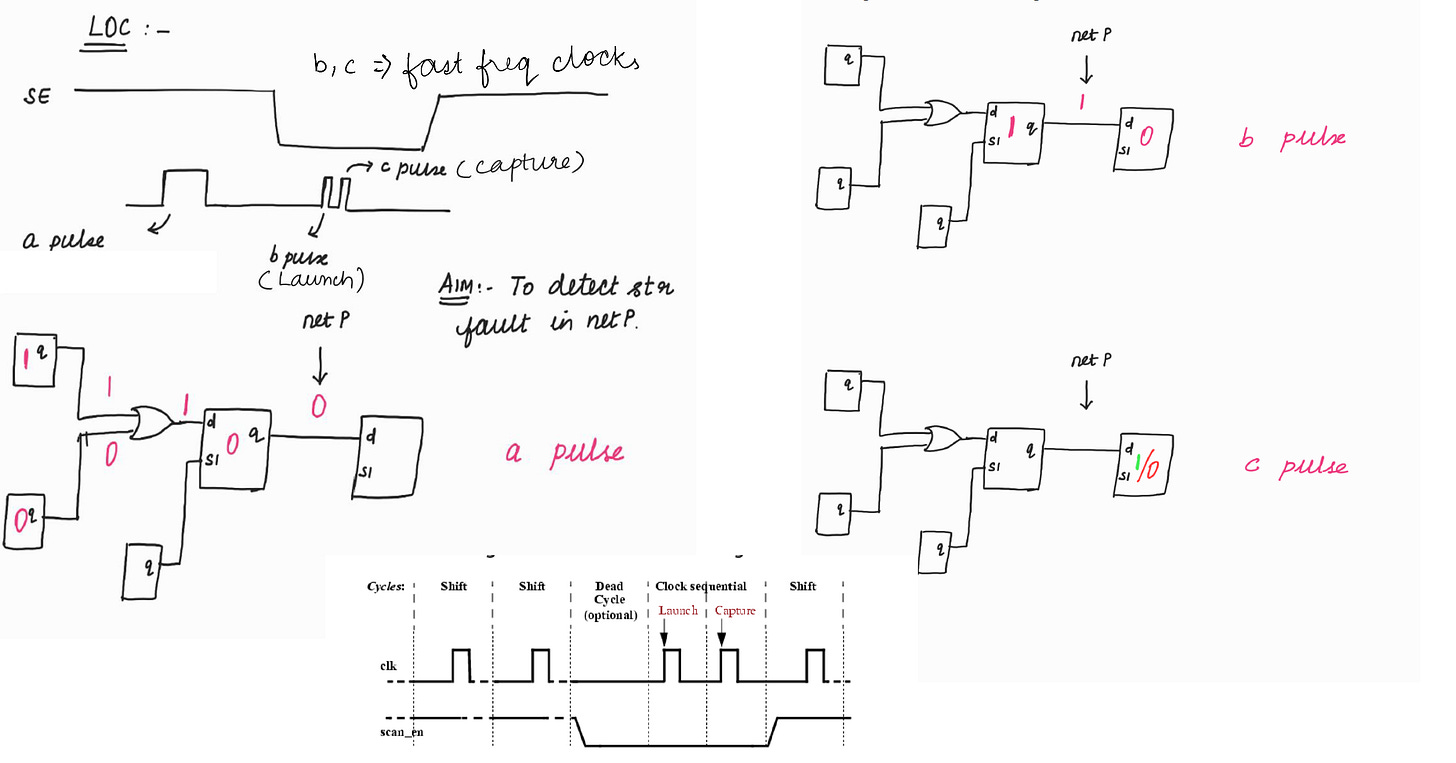 LOC :-
b, c => fast freq clocks
SE
c pulse (capture)
a pulse
b pulse
(Launch)
AIM:- To detect str
fault in net P.
net P
1 q
1
1
0
0
d
0 q
SI
d
SI
0 q
q
a pulse
net P
1
q
d
1 q
SI
d
0
SI
q
q
b pulse
net P
q
d
q
SI
d
1/0
SI
q
q
c pulse
Cycles: Shift Shift Dead Cycle (optional) Clock sequential Shift
Launch Capture
clk
scan_en